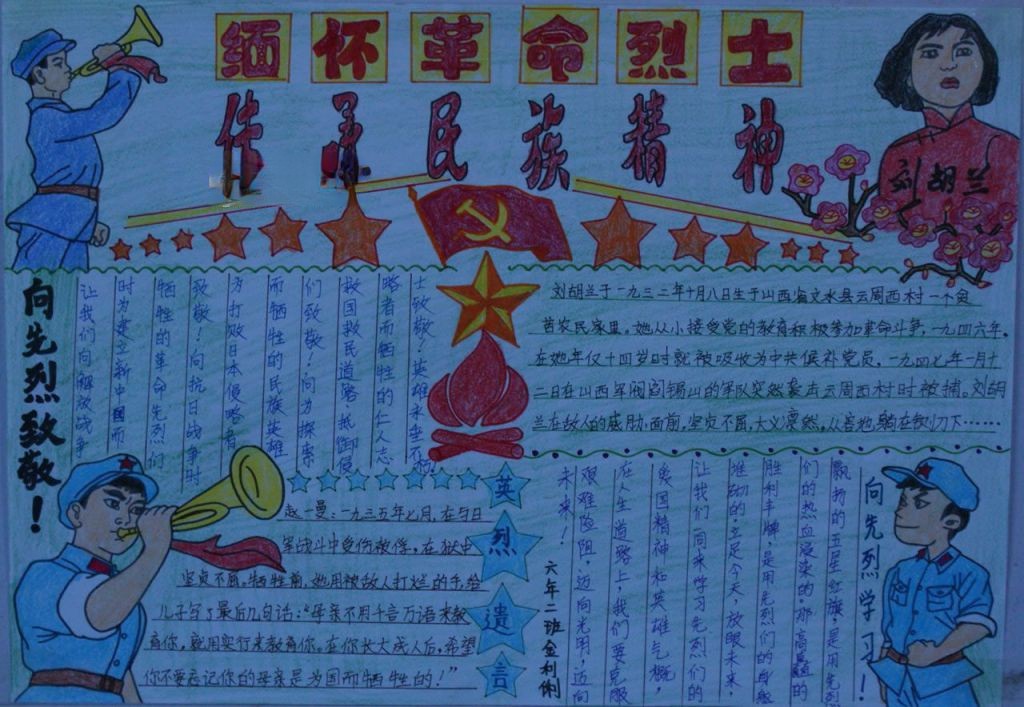 缅怀革命烈士
传承民族精神
刘胡兰
向先烈致敬！
让我们向解放战争
时为建立新中国而
牺牲的革命先烈们
致敬！向抗日战争时
为打败日本侵略者
而牺牲的民族英雄
们致敬！向为探索
救国救民道路、抵御侵
略者而牺牲的仁人志
士致敬！英雄永垂不朽
刘胡兰于一九三二年十月八日生于山西省文水县云周西村一个贫
苦农民家里。她从小接受党的教育积极参加革命斗争，一九四六年，
在她年仅十四岁时就被吸收为中共候补党员，一九四七年一月十
二日在山西军阀阎锡山的军队突然袭击云周西村时被捕。刘胡
兰在敌人的威胁面前，坚贞不屈，大义凛然，从容地躺在铡刀下……
英烈遗言
赵一曼：一九三五年七月，在与日
军战斗中受伤被俘，在狱中
坚贞不屈。牺牲前，她用被敌人打烂的手给
儿子写了最后几句话：“母亲不用千言万语来教
育你，就用实行来教育你。在你长大成人后，希望
你不要忘记你的母亲是为国而牺牲的！”
六年二班金利俐
向先烈学习！
飘扬的五星红旗，是用先烈
们的热血浸染的。那高矗的
胜利丰碑，是用先烈们的身躯
堆砌的。立足今天，放眼未来，
让我们同来学习先烈们的
爱国精神和英雄气概，
在人生道路上，我们要克服
艰难险阻，迈向光明，迈向
未来！